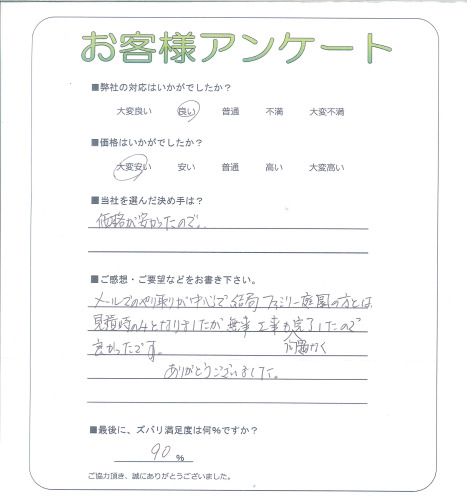 お客様アンケート
■弊社の対応はいかがでしたか？
大変良い 良い 普通 不満 大変不満
■価格はいかがでしたか？
大変安い 安い 普通 高い 大変高い
■当社を選んだ決め手は？
価格が安かったので。
■ご感想・ご要望などをお書き下さい。
メールでのやり取りが中心で結局ファミリー庭園の方とは
見積時のみとなりましたが無事工事も完了したので
問題なく
良かったです。
ありがとうございました。
■最後に、ズバリ満足度は何％ですか？
90 %
ご協力頂き、誠にありがとうございました。